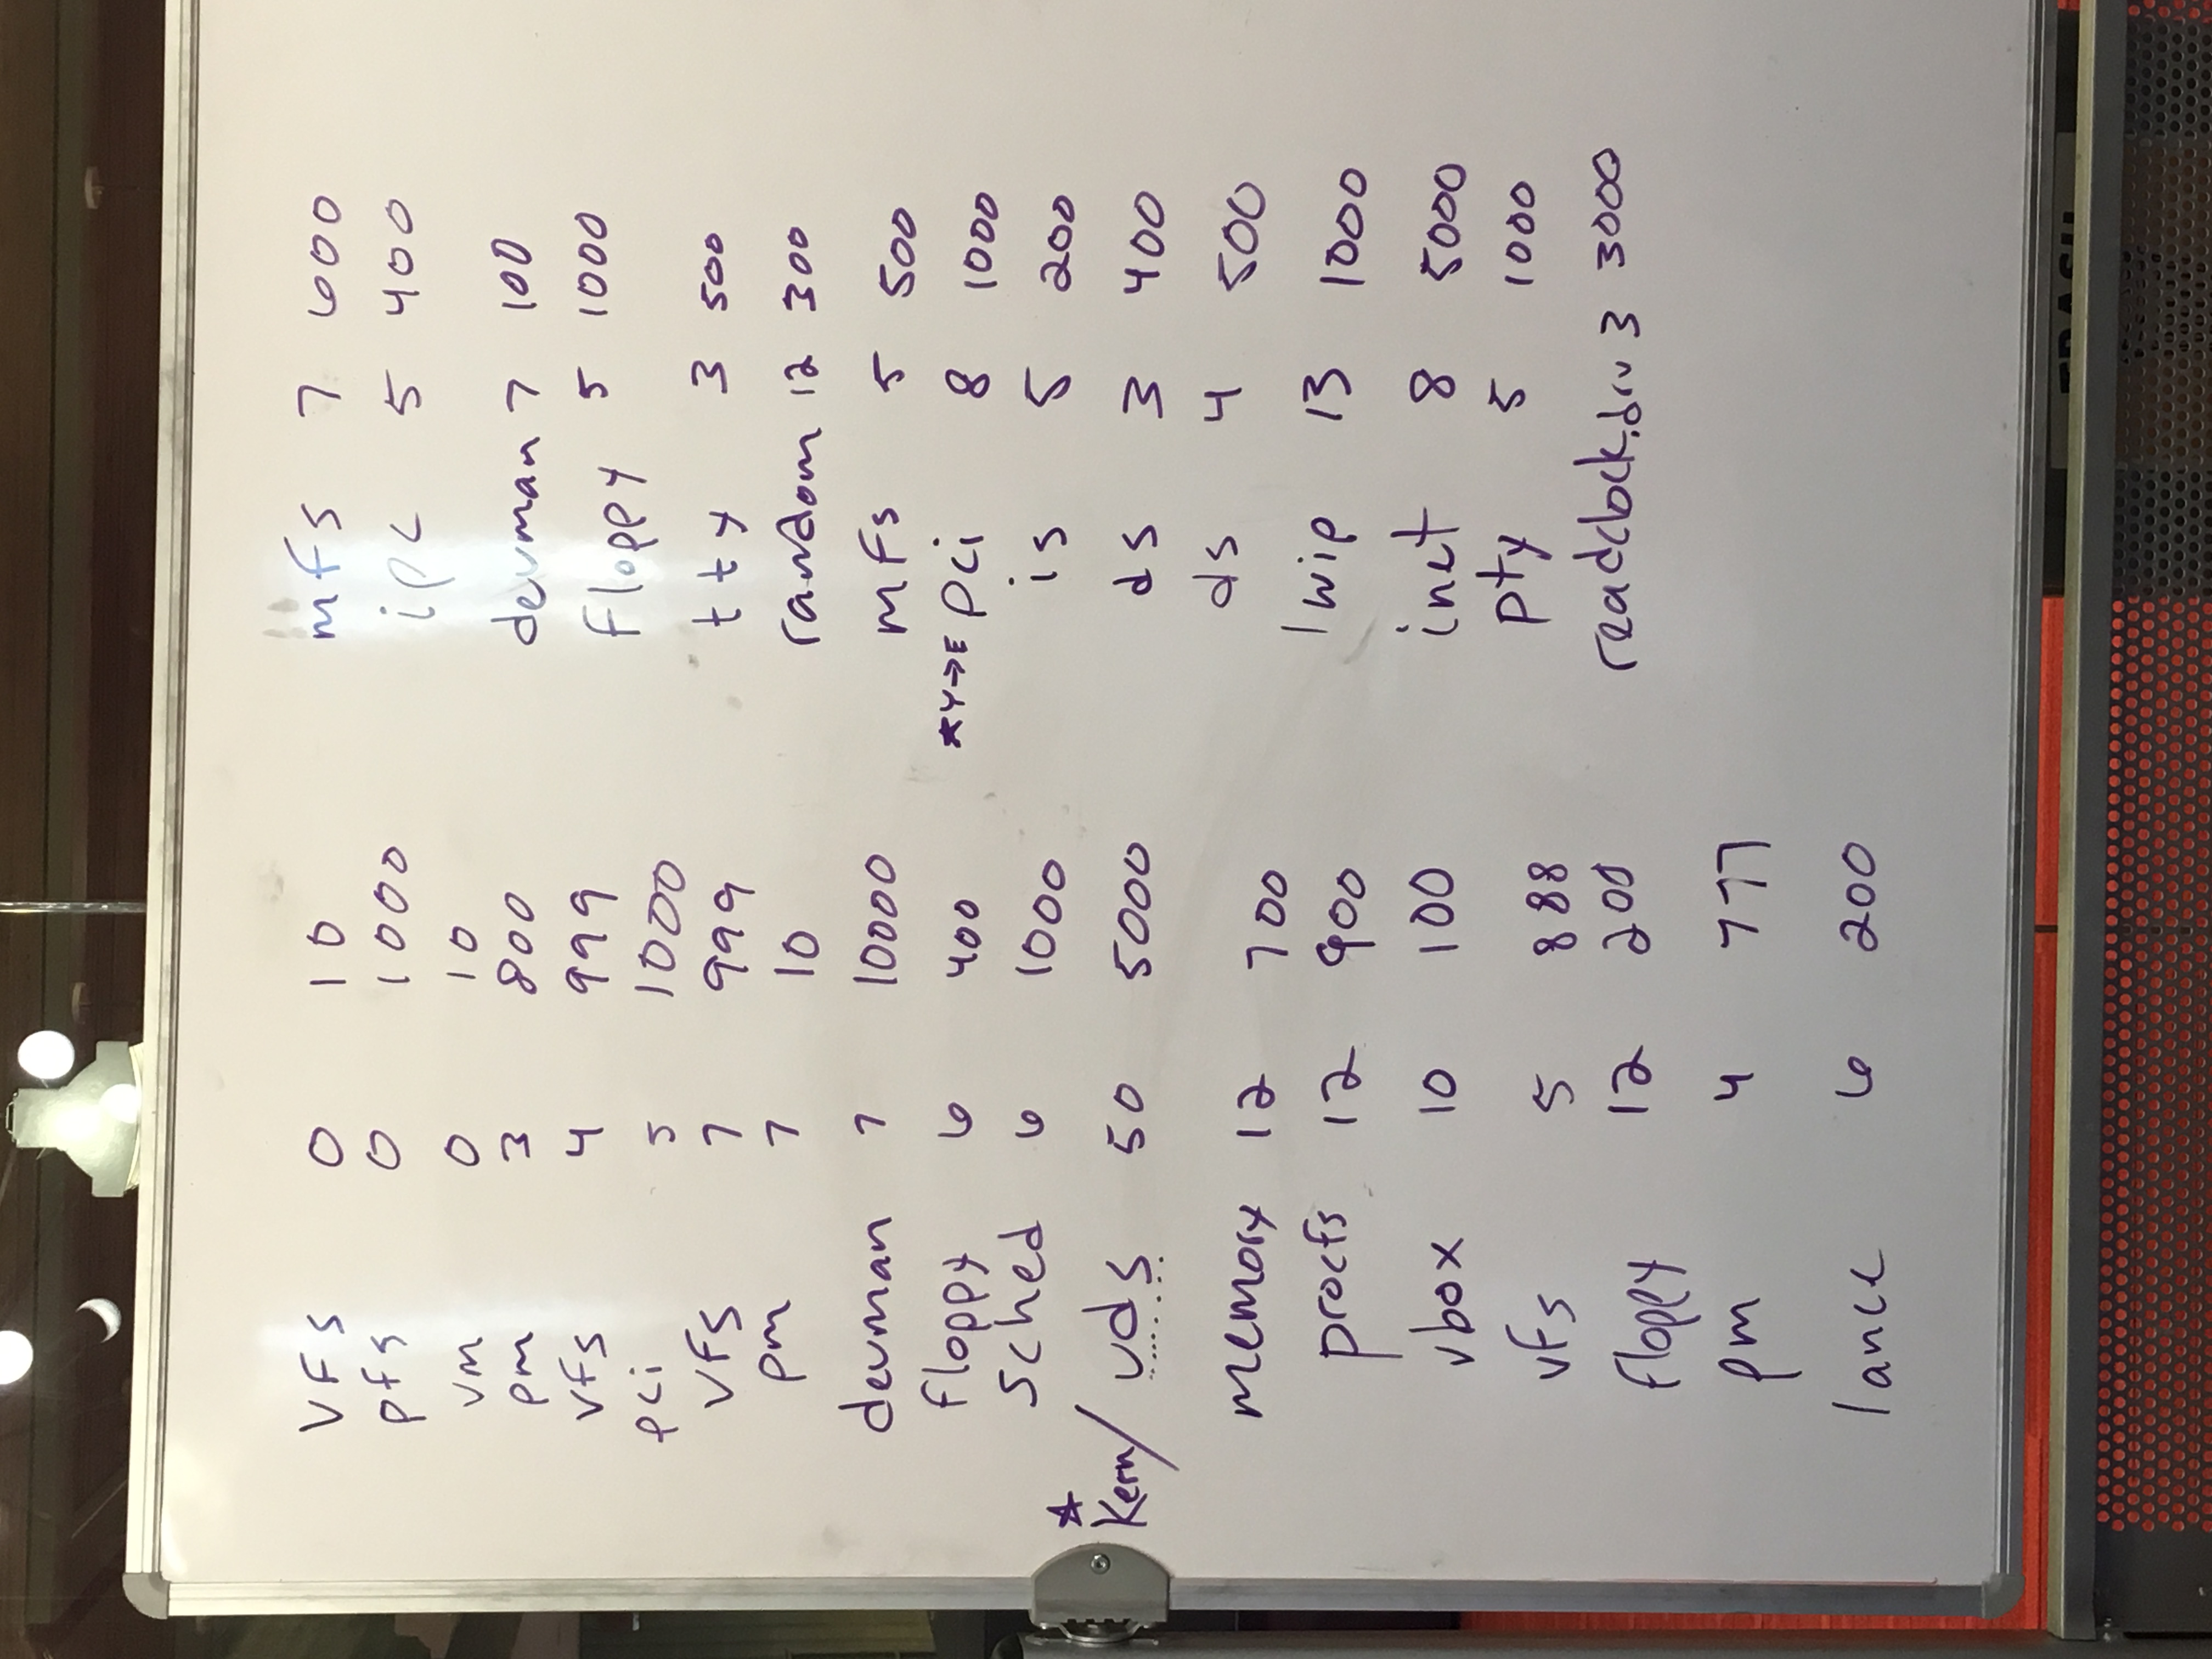 VFS 0 10
pfs 0 1000
vm 0 10
pm 3 800
vfs 4 999
pci 5 1000
VFS 7 999
pm 7 10
devman 7 10000
floppy 6 400
Sched 6 1000
★
Kern/ vds 50 5000
memory 12 700
procfs 12 900
vbox 10 100
vfs 5 888
floppy 12 200
pm 4 777
lance 6 200
mfs 7 600
ipc 5 400
devman 7 100
floppy 5 1000
tty 3 500
random 12 300
mfs 5 500
★Y→E pci 8 1000
is 5 200
ds 3 400
ds 4 500
lwip 13 1000
inet 8 5000
pty 5 1000
readclock.drv 3 3000
TRASH